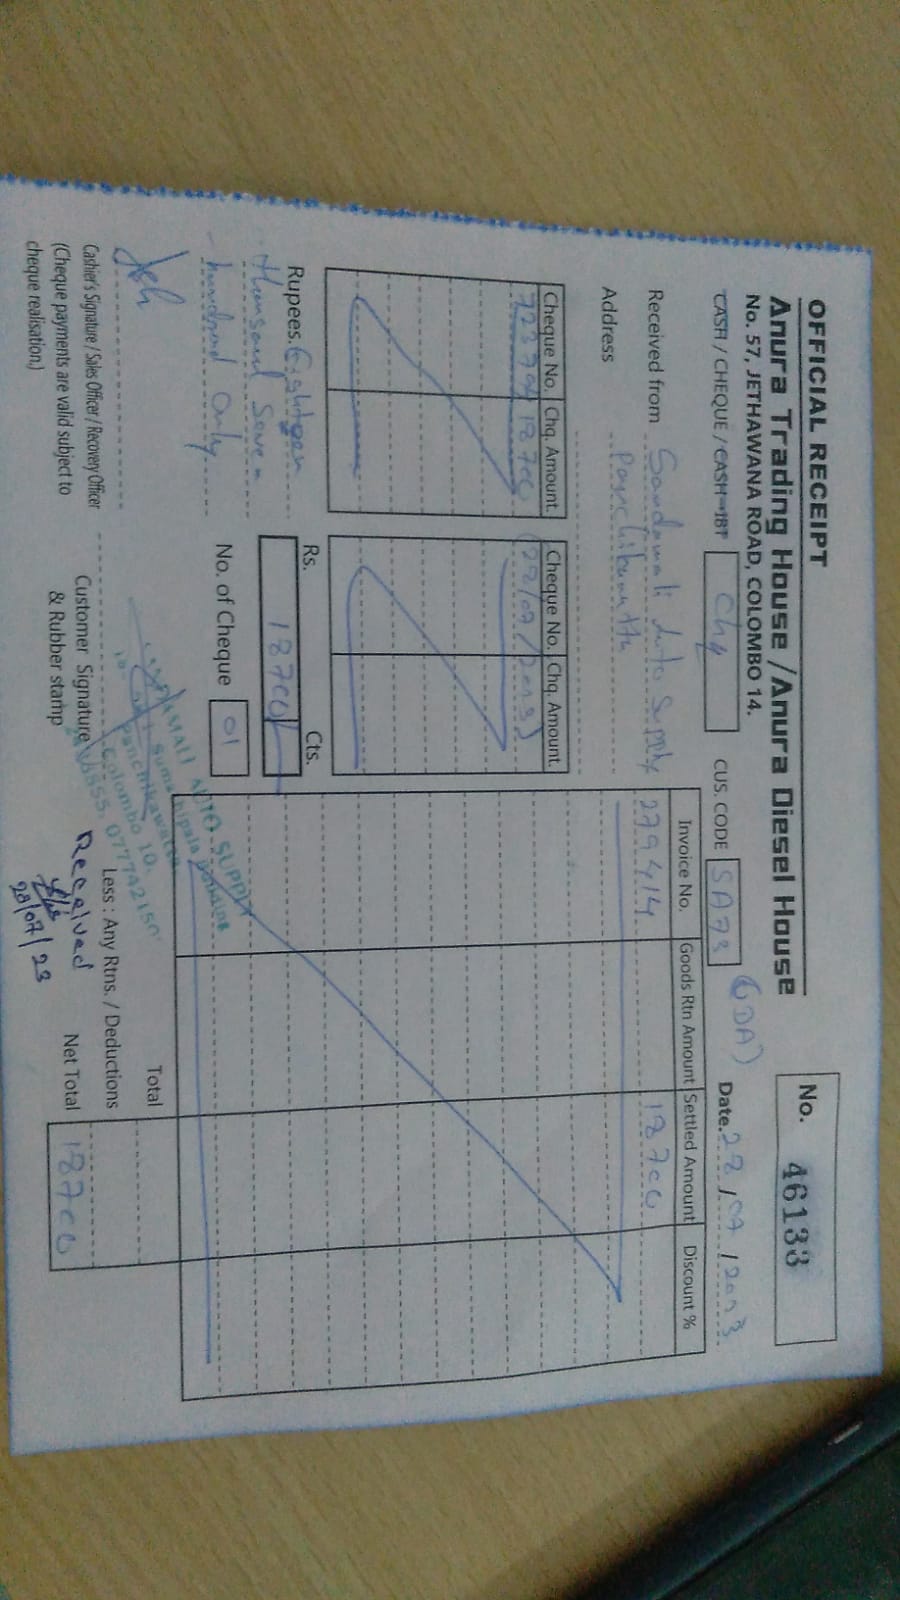 OFFICIAL RECEIPT
Anura Trading House / Anura Diesel House
No. 57, JETHAWANA ROAD, COLOMBO 14.
No. 46133
CASH / CHEQUE / CASH-IBT Chq CUS. CODE SA73 Date. 28/07/2023
Received from Sandamali Auto Supply
Address
Cheque No. Chq. Amount.
18700
Cheque No. Chq. Amount.
(28/07/2023)
Invoice No. Goods Rtn Amount Settled Amount Discount %
279414 18700
Rupees. Eighteen
thousand Seven
hundred Only
Rs. Cts.
18700/
No. of Cheque 01
Total
Less : Any Rtns. / Deductions
Net Total 18700
Cashier's Signature / Sales Officer / Recovery Officer
(Cheque payments are valid subject to
cheque realisation.)
Customer Signature
& Rubber stamp
AUTO SUPPLY
Colombo 10.
Received
28/07/23